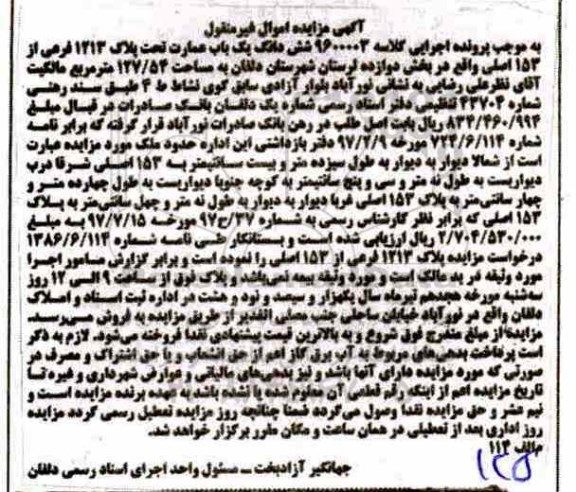 آگهی مزایده اموال غیرمنقول
به موجب پرونده اجرایی کلاسه 9600003 شش دانگ یک باب عمارت تحت پلاک 1213 فرعی از
153 اصلی واقع در بخش دوازده لرستان شهرستان دلفان به مساحت 127/54 مترمربع مالکیت
آقای نظرعلی رضایی به نشانی نورآباد بلوار آزادی سابق کوی نشاط ط 4 طبق سند رهنی
شماره 23704 تنظیمی دفتر اسناد رسمی شماره یک دلفان بانک صادرات در قبال مبلغ
834/460/994 ریال بابت اصل طلب در رهن بانک صادرات نورآباد قرار گرفته که برابر نامه
شماره 724/6/114 مورخه 97/2/9 دفتر بازداشتی این اداره حدود ملک مورد مزایده عبارت
است از شمالا دیوار به دیوار به طول سیزده متر و بیست سانتیمتر به 153 اصلی شرقا درب
دیواریست به طول نه متر و سی و پنج سانتیمتر به کوچه جنوبا دیواریست به طول چهارده متر و
چهار سانتی‌متر به پلاک 153 اصلی غربا دیوار به دیوار به طول نه متر و چهل سانتی‌متر به پلاک
153 اصلی که برابر نظر کارشناس رسمی به شماره 37/ح97 مورخه 97/7/15 به مبلغ
2/704/530/000 ریال ارزیابی شده است و بستانکار طی نامه شماره 1386/6/114
درخواست مزایده پلاک 1213 فرعی از 153 اصلی را نموده است و برابر گزارش مامور اجرا
مورد وثیقه در ید مالک است و مورد وثیقه بیمه نمی‌باشد و پلاک فوق از ساعت 9 الی 12 روز
سه‌شنبه مورخه هجدهم تیرماه سال یکهزار و سیصد و نود و هشت در اداره ثبت اسناد و املاک
دلفان واقع در نورآباد خیابان ساحلی جنب مصلی الغدیر از طریق مزایده به فروش می‌رسد.
مزایده از مبلغ مندرج فوق شروع و به بالاترین قیمت پیشنهادی نقدا فروخته می‌شود. لازم به ذکر
است پرداخت بدهی‌های مربوط به آب برق گاز اعم از حق انشعاب و یا حق اشتراک و مصرف در
صورتی که مورد مزایده دارای آنها باشد و نیز بدهی‌های مالیاتی و عوارض شهرداری و غیره تا
تاریخ مزایده اعم از اینکه رقم قطعی آن معلوم شده یا نشده باشد به عهده برنده مزایده است و
نیم عشر و حق مزایده نقدا وصول می‌گردد ضمنا چنانچه روز مزایده تعطیل رسمی گردد مزایده
روز اداری بعد از تعطیلی در همان ساعت و مکان مقرر برگزار خواهد شد.
م‌الف 114
جهانگیر آزادبخت ـ مسئول واحد اجرای اسناد رسمی دلفان
125